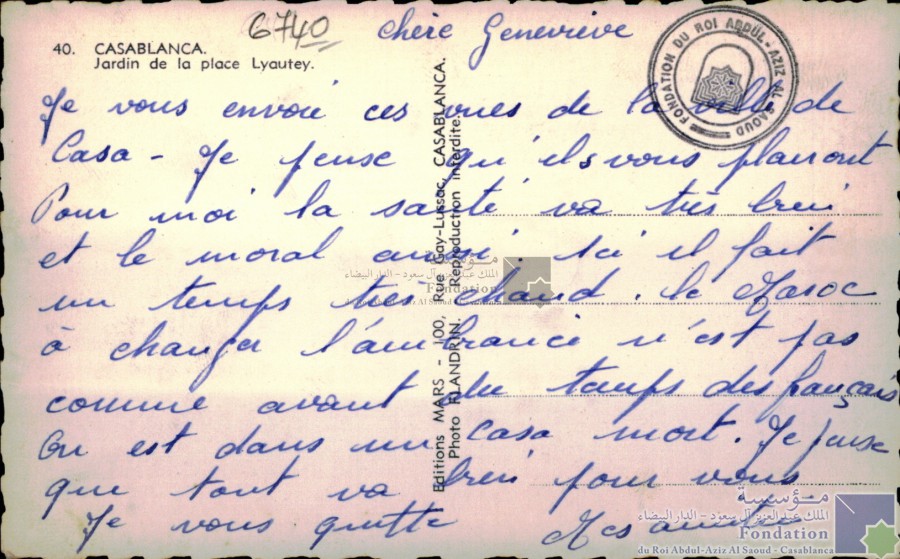 6740
chère Geneviève
40. CASABLANCA.
Jardin de la place Lyautey.
FONDATION DU ROI ABDUL-AZIZ AL SAOUD
Je vous envoie ces vues de la ville de
Casa - Je pense qu'ils vous plairont
Pour moi la santé va très bien
et le moral aussi. Ici il fait
un temps très chaud. le Maroc
à changer l'ambiance n'est pas
comme avant du temps des français
On est dans un casa mort. Je pense
que tout va bien pour vous
Je vous quitte
Mes amitiés
Editions MARS - 100, Rue Gay-Lussac, CASABLANCA.
Photo FLANDRIN. Reproduction interdite.
مؤسسة
الملك عبد العزيز آل سعود - الدار البيضاء
Fondation
du Roi Abdul-Aziz Al Saoud - Casablanca
مؤسسة
الملك عبد العزيز آل سعود - الدار البيضاء
Fondation
du Roi Abdul-Aziz Al Saoud - Casablanca